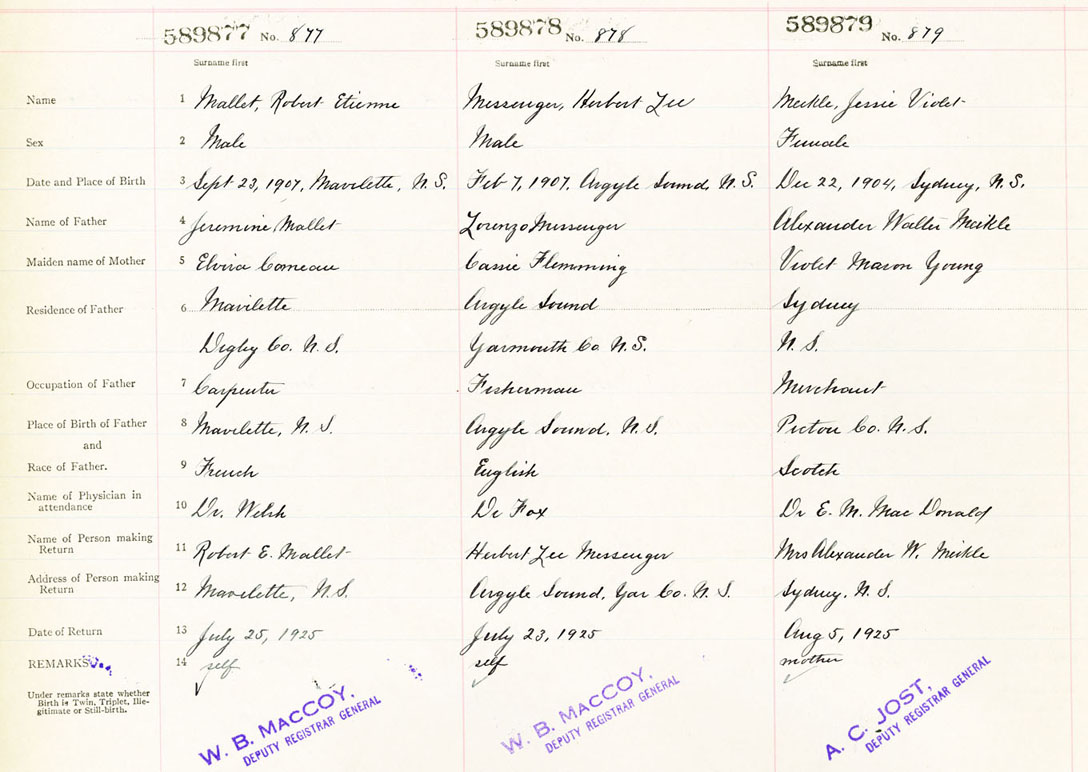 589877 No. 877 589878 No. 878 589879 No. 879
Surname first Surname first Surname first
Name 1 Mallet, Robert Etienne Messenger, Herbert Lee Meikle, Jessie Violet
Sex 2 Male Male Female
Date and Place of Birth 3 Sept 23, 1907, Mavilette, N.S. Feb 7, 1907, Argyle Sound, N.S. Dec 22, 1904, Sydney, N.S.
Name of Father 4 Jeremine Mallet Lorenzo Messenger Alexander Walter Meikle
Maiden name of Mother 5 Elvira Comeau Cassie Flemming Violet Mason Young
Residence of Father 6 Mavilette Argyle Sound Sydney
Digby Co. N.S. Yarmouth Co N.S. N.S.
Occupation of Father 7 Carpenter Fisherman Merchant
Place of Birth of Father 8 Mavilette, N.S. Argyle Sound, N.S. Pictou Co. N.S.
and
Race of Father. 9 French English Scotch
Name of Physician in attendance 10 Dr. Welsh Dr Fox Dr E. M. MacDonald
Name of Person making Return 11 Robert E. Mallet Herbert Lee Messenger Mrs Alexander W. Meikle
Address of Person making Return 12 Mavelette, N.S. Argyle Sound, Yar Co. N.S. Sydney, N.S.
Date of Return 13 July 25, 1925 July 23, 1925 Aug 5, 1925
REMARKS 14 self self mother
Under remarks state whether
Birth is Twin, Triplet, Ille-
gitimate or Still-birth.
W. B. MACCOY, W. B. MACCOY, A. C. JOST,
DEPUTY REGISTRAR GENERAL DEPUTY REGISTRAR GENERAL DEPUTY REGISTRAR GENERAL